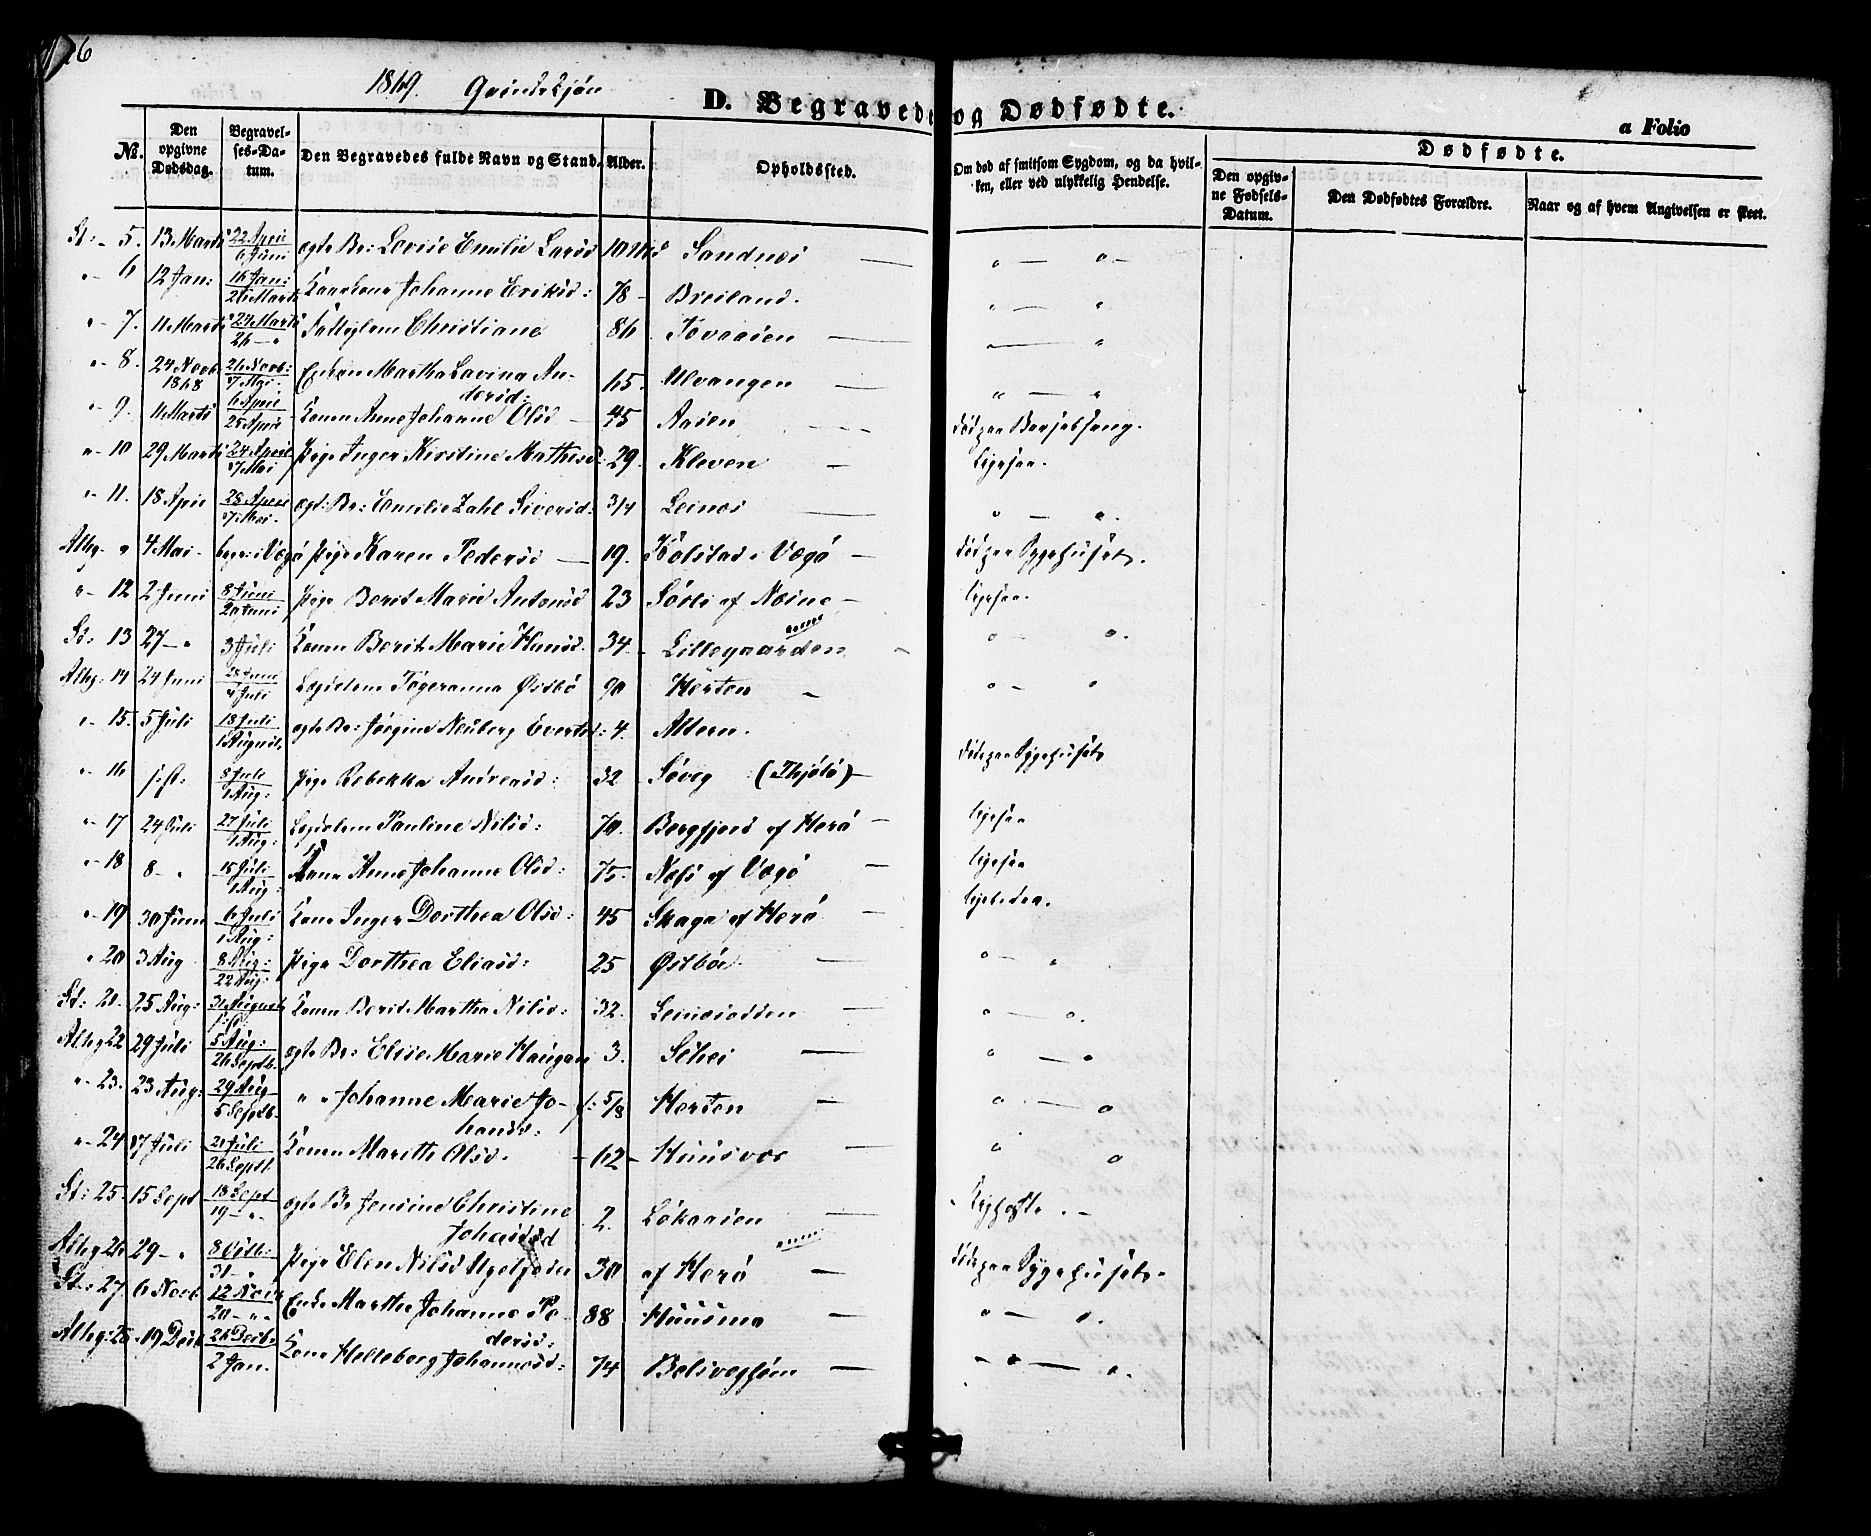 26
1869. Qvindekjøn
D. Begravede og Dødfødte.
a Folio
No.
Den opgivne Dødsdag.
Begravelses-Datum.
Den Begravedes fulde Navn og Stand.
Alder.
Opholdssted.
Om død af smitsom Sygdom, og da hvilken, eller ved ulykkelig Hendelse.
Dødfødte.
Den opgivne Fødsels-Datum.
Den Dødfødtes Forældre.
Naar og af hvem Angivelsen er skeet.
St: - 5. 13 Marts 22 April 6 Juni ægte Br: Lovise Emilie Larsd 10 Mdr Sandnes " — "
" 6 12 Jan: 16 Jan: 26 Marts Johanne Eriksd: 78 - Breiland. " — "
" - 7. 11 Marts 24 Marts 26 — " Christiane 86 Tovaasen " — "
" - 8. 24 Novb. 1868 26 Novb: 7 Mai. Enken Martha Lavina An-
dersd: 65. Ulvangen " — "
" - 9. 11 Marts 6 April 25 April Konen Anne Johanne Olsd — 45 Aasen død paa Barselseng.
" - 10 29 Marts 24 April 7 Mai Pige Inger Kirstine Mathisd: 29. Kleven ligesaa.
" - 11. 18 April 28 April 7 Mai. ægt: Br: Emilie Zahl Siversd: 3/4 Leines " — "
Alhg. " 4 Mai - begr: i Vægø Pige Karen Pedersd — 19. Holstad i Vægø — død paa Sygehuset.
" - 12 2 Juni 8 Juni 20 Juni Pige Berit Marie Antonsd 23 af Næsne — ligesaa.
St: 13 27 — " 3 Juli Konen Berit Marie Hansd. 34 - Lillegaarden " "
Alhg: 14 24 Juni 28 Juni 4 Juli Østbø 90 Hersten — " — "
" - 15. 5 Juli 18 Juli 1 August. ægte Br: Jørgine Neuberg Evertsd: 4. Altern.
" - 16 8 Juli 1 Aug: Pige Rebekka Andreasd: 32 Søveg (Thjøtø) — død paa Sygehuset
" - 17 24 Juli 27 Juli 1 Aug: Pauline Nilsd: 70. Bergfjord af Herø — ligesaa
" - 18 8 — " 15 Juli 1 Aug: Kone Anne Johanne Olsd: 75. Næs af Vægø — ligesaa
" - 19 30 Juni 6 Juli 1 Aug: Kone Inger Dorthea Olsd: 45 Skaga af Herø — ligeledes.
" 20 3 Aug 8 Aug: 22 Aug: Pige Dorthea Eliasd: 25 Østbøe. — " — "
St: 21. 25 Aug: 31 August Konen Berit Martha Nilsd: 32. Leinesodden — " — "
Alhg 22 29 Juli 5 Aug: 26 Septb. ægte Br: Elise Marie Haugan 3. — " — "
" - 23. 23 Aug: 29 Aug 5 Septb. " " Johanne Marie Jo-
hansd: 5/8 Hersten — " — "
" - 24 17 Juli 21 Juli 26 Septb. Konen Marith Olsd. - 62 - Huusvær — " "
St: 25. 15 Sept 18 Sept 19 — " ægte Br Jensine Christine
2. Løkaasen —
Alhg 26 29 — " 8 Octb: 31 — " Pige Elen Nilsd 30 af Herø — død paa Sygehuset.
St: 27 6 Novb. 12 Novb 20 — " Enke Marthe Johanne Pe-
dersd: 88 Huusmo — " — "
Alhg: 28 19 Decb. 26 Decb. 2 Jan. Kone Helleborg Johannesd: 74 — " — "